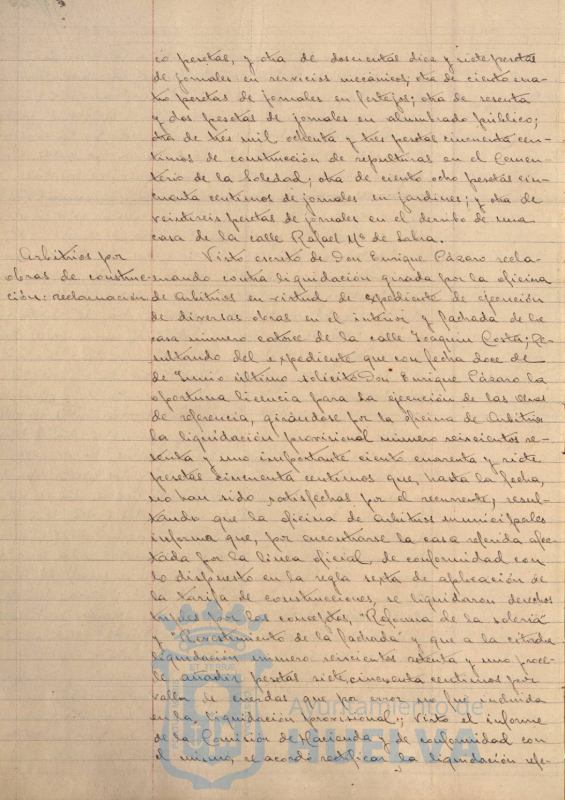 co pesetas, y otra de doscientas diez y siete pesetas
de jornales en servicios mecánicos; otra de ciento cua-
tro pesetas de jornales en festejos; otra de sesenta
y dos pesetas de jornales en alumbrado público;
otra de tres mil ochenta y tres pesetas cincuenta cén-
timos de construcción de sepulturas en el Cemen-
terio de la Soledad; otra de ciento ocho pesetas cin-
cuenta céntimos de jornales en jardines; y otra de
veintiseis pesetas de jornales en el derribo de una
casa de la calle Rafael Mª de Labra.
Arbitrios por
obras de construc-
ción: reclamación
Visto escrito de Don Enrique Pázaro recla-
mando contra liquidación girada por la oficina
de Arbitrios en virtud de expediente de ejecución
de diversas obras en el interior y fachada de la
casa número catorce de la calle Joaquín Costa; Re-
sultando del expediente que con fecha doce de
de Junio último solicitó Don Enrique Pázaro la
oportuna licencia para la ejecución de las obras
de referencia, girándose por la oficina de Arbitrios
la liquidación provisional número seiscientos se-
tenta y uno importante ciento cuarenta y siete
pesetas cincuenta céntimos que, hasta la fecha,
no han sido satisfechas por el recurrente; resul-
tando que la oficina de arbitrios municipales
informa que, por encontrarse la casa referida afec-
tada por la línea oficial, de conformidad con
lo dispuesto en la regla sexta de aplicación de
la tarifa de construcciones, se liquidaron derechos
triples por los conceptos, "Reforma de la solería"
y "Revestimiento de la fachada" y que a la citada
liquidación número seiscientos setenta y uno proce-
de añadir pesetas siete, cincuenta céntimos por
valla de cuerdas que por error no fué incluida
en la liquidación provisional; Visto el informe
de la Comisión de Hacienda y de conformidad con
el mismo, se acordó rectificar la liquidación refe-
Ayuntamiento de
HUELVA